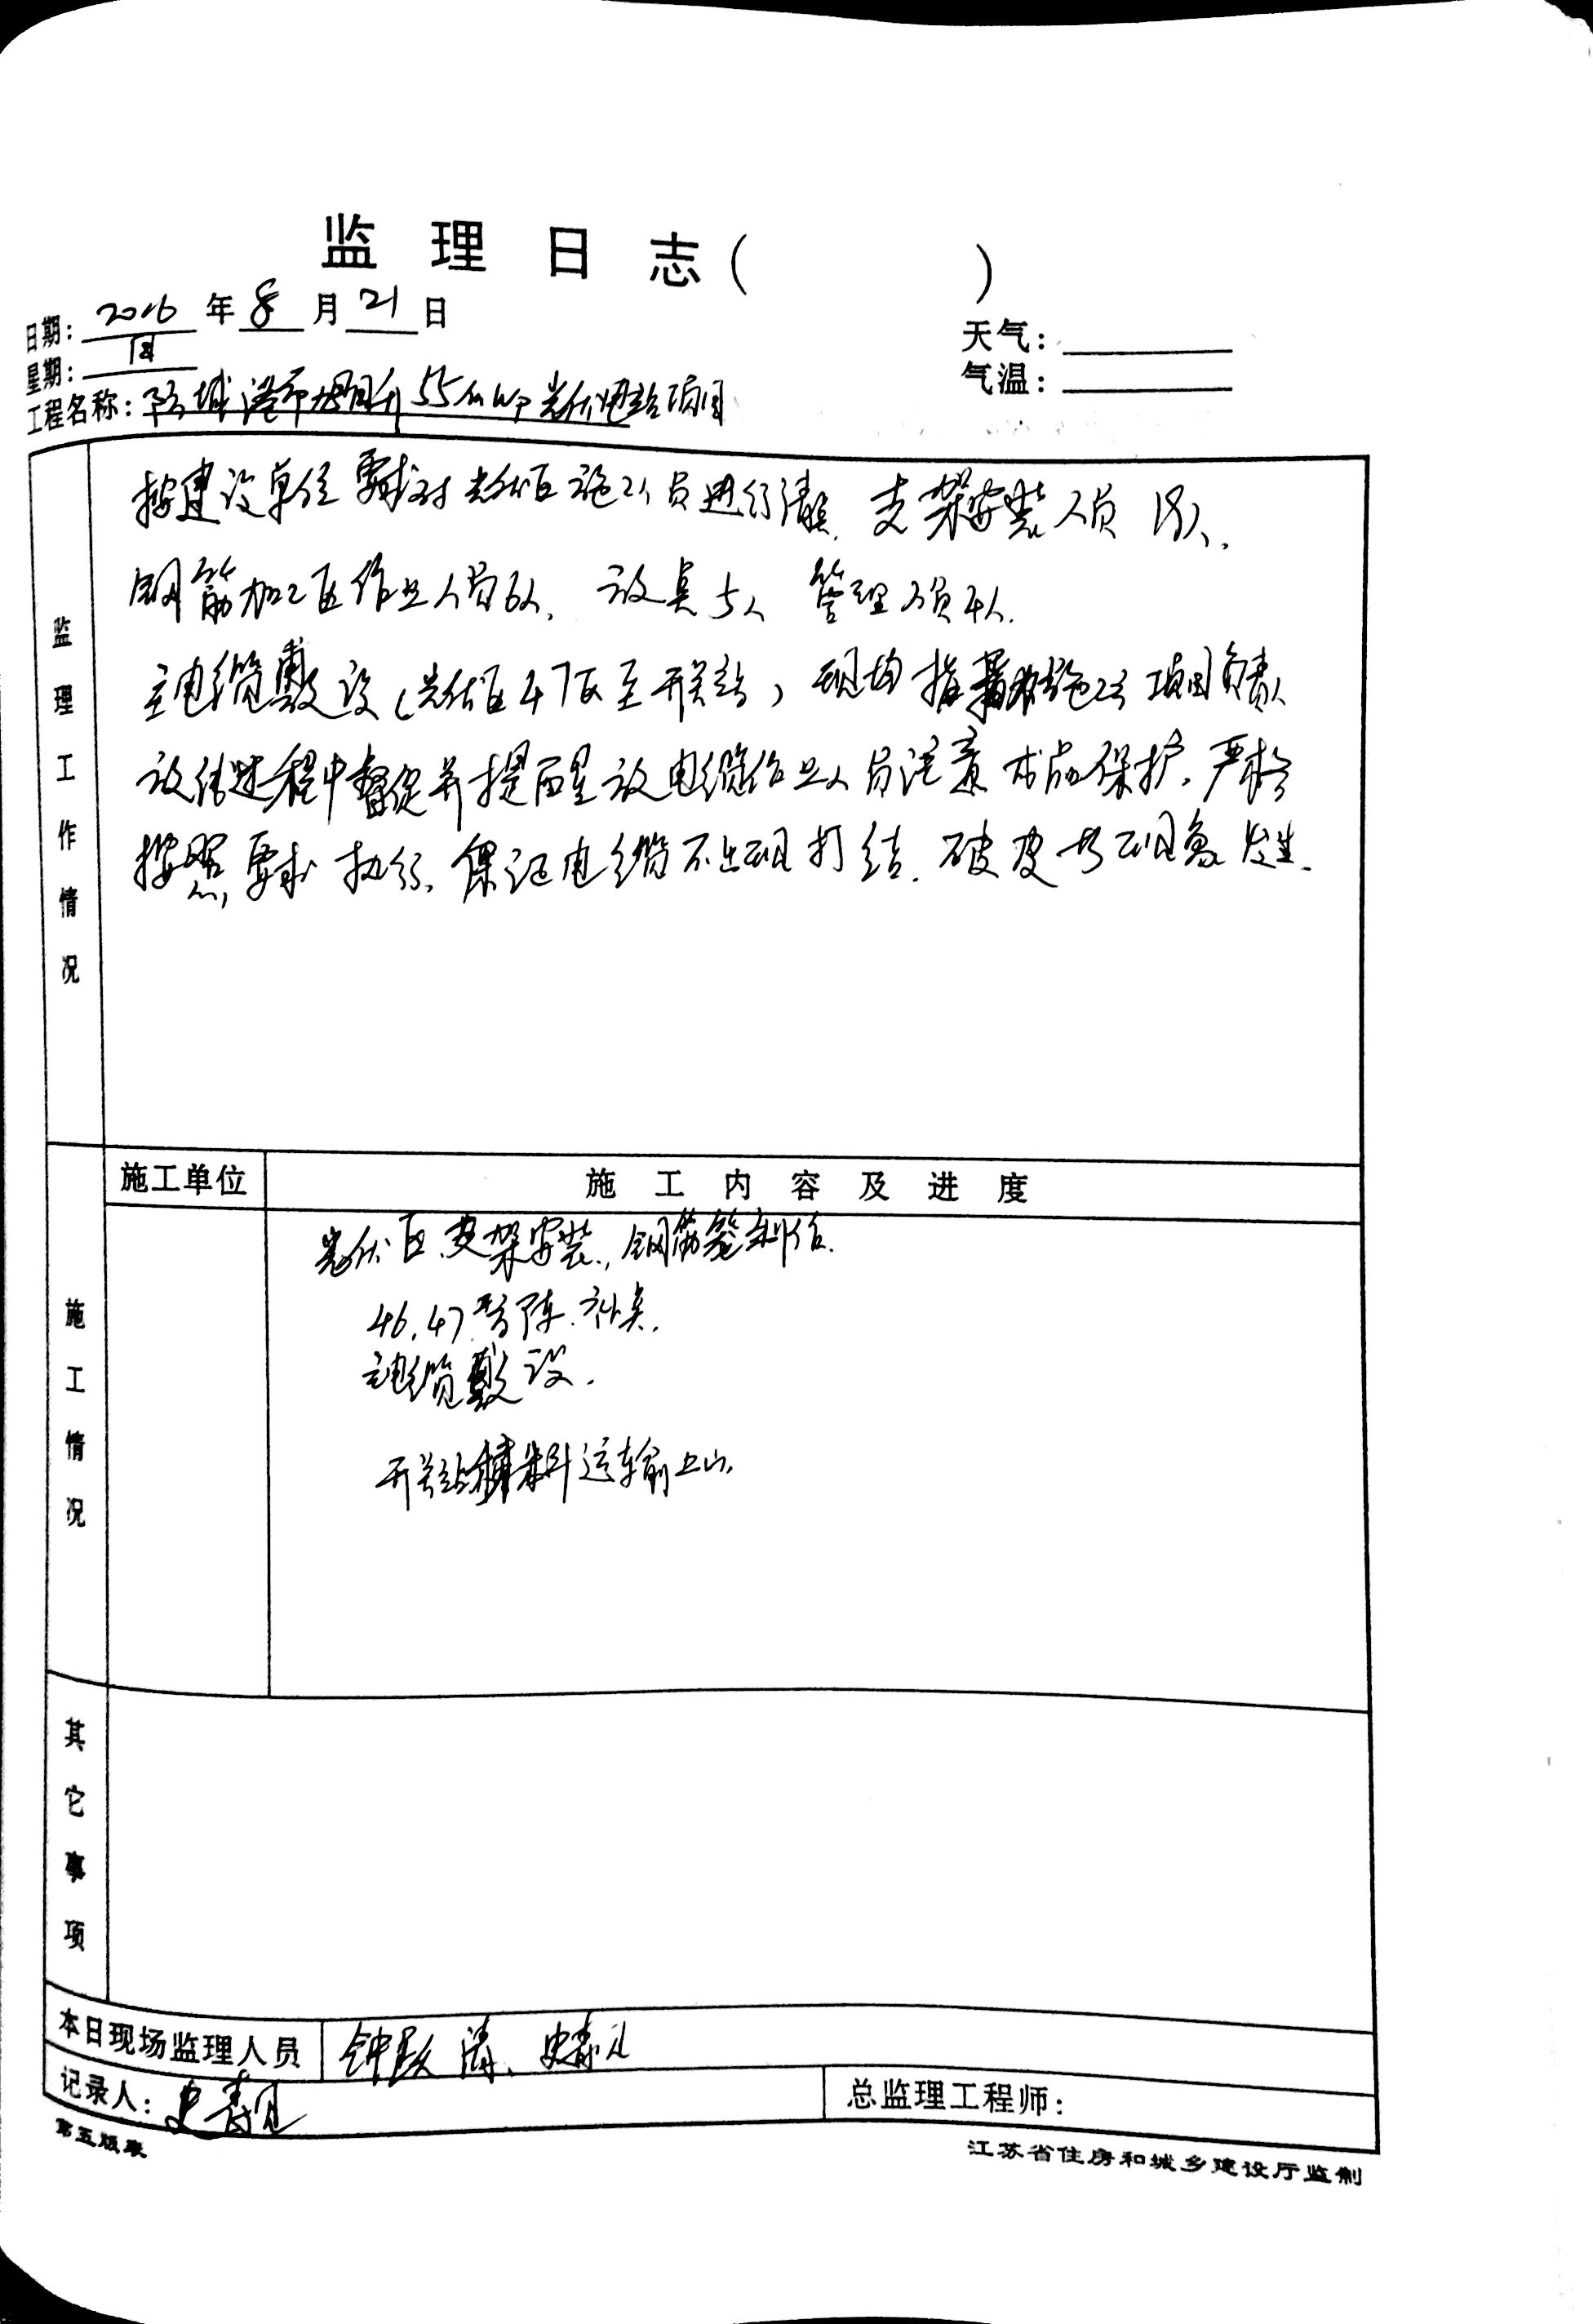 监理日志( )
日期: 2016 年 8 月 21 日
星期: 日
天气:
气温:
工程名称: 防城港市 55MWp光伏电站项目
监理工作情况
按建设单位要求对光伏区施工人员进行清点. 支架安装人员18人、
钢筋加工区作业人员6人、 放线5人 管理人员4人.
主电缆敷设(光伏区47区至开关站), 现场指 施工 项目负责人
放线过程中督促并提醒放电缆作业人员注意成品保护. 严格
按照要求执行. 保证电缆不出现打结. 破皮等现象发生.
施工单位
施工内容及进度
施工情况
光伏区支架安装, 钢筋笼制作.
46.47号方阵.补桩.
主电缆敷设.
开关站材料运输上山.
其它事项
本日现场监理人员
钟 清、史
记录人: 史
总监理工程师:
第五版表
江苏省住房和城乡建设厅监制